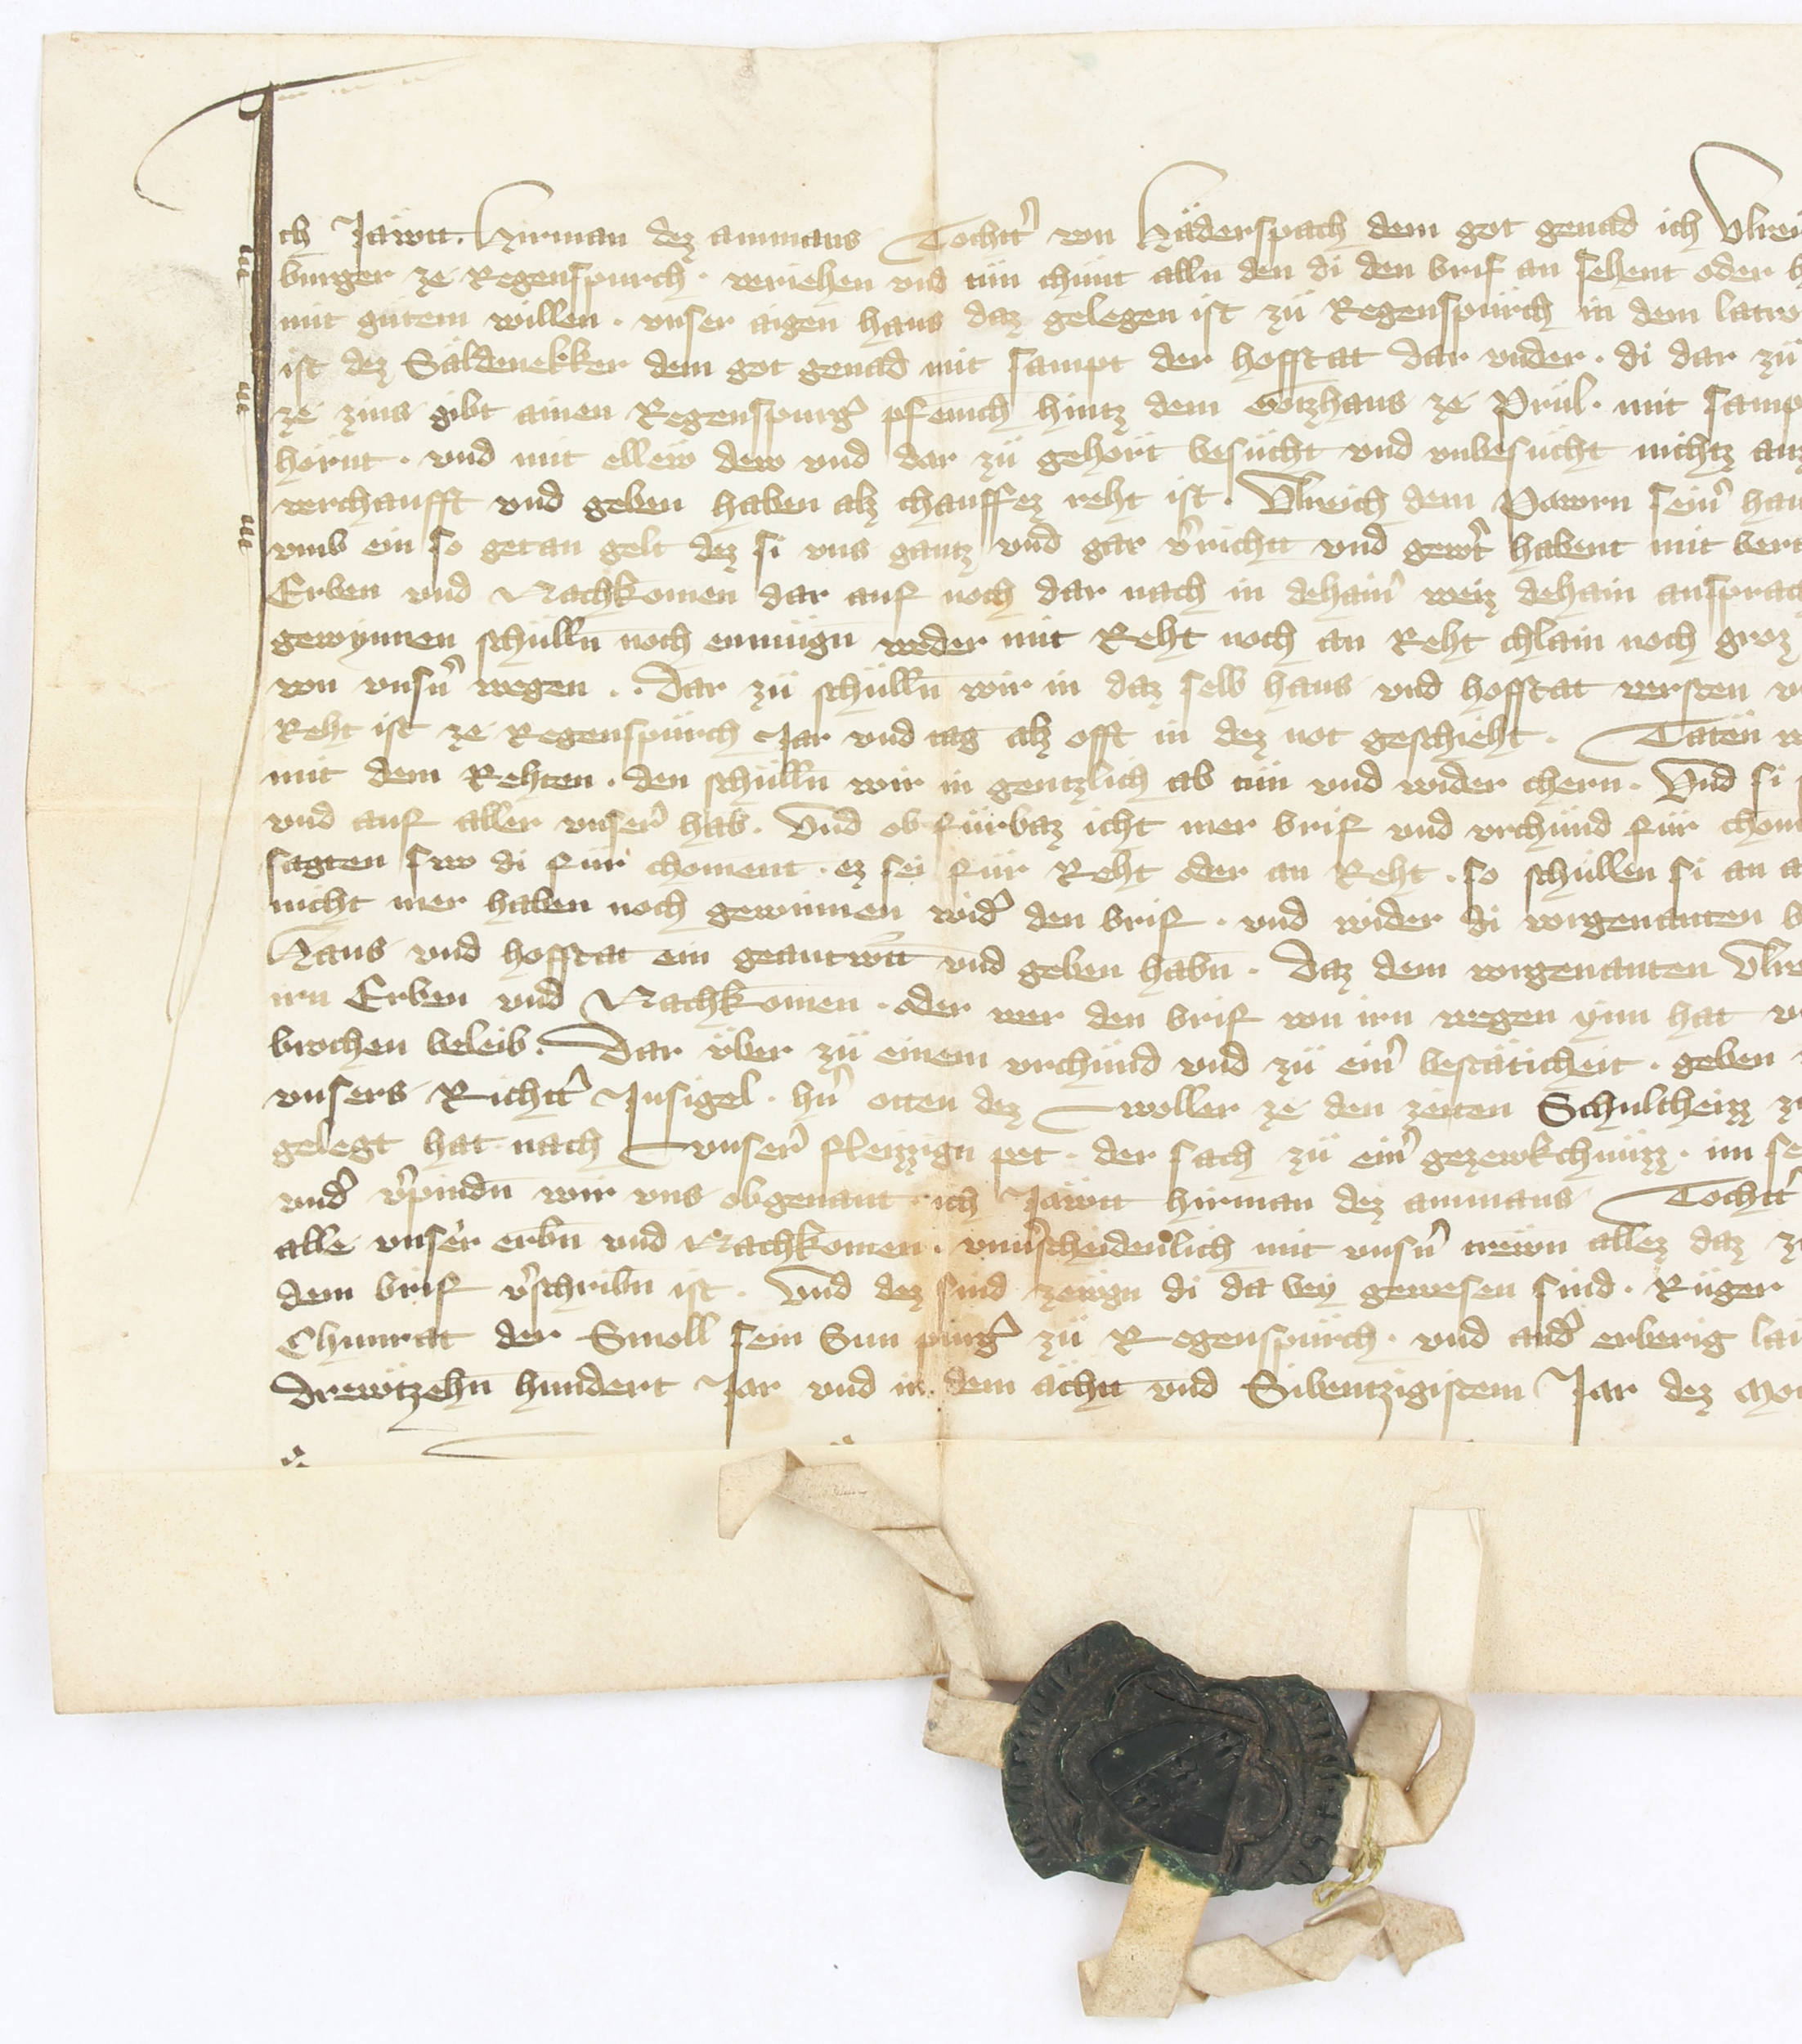 Ich Jäwtt. Hirman dez ammans Tochtt̉ von Häderspach dem got genad ich Vlrei
burger ze Regenspurch. veriehen vnd tün chunt alln̄ den di den brif an sehent oder h
mit gütem willen. vnser aigen haus daz gelegen ist zü Regenspürch in dem latro
ist dez Säldenekker dem got genad mit sampt der hofstat dar vnder. di dar zü
ze zins gibt ainen Regenspurg̉ pfenich hintz dem Gotzhaus ze Prül. mit samp
hörnt. vnd mit ellew dew vnd dar zü gehört besücht vnd vnbesücht nichtz auz
verchaufft vnd geben haben alz chauffez reht ist. Vlreich dem Pawrn sein̉ hau
vmb ein so getan gelt dez si vns gantz vnd gar v̉richtt vnd gewt̉ habent mit ber
Erben vnd Nachkomen dar auf noch dar nach in dehain̉ weiz dehain ansprach
gewynnen schülln̄ noch enmügn̄ weder mit Reht noch an Reht chlain noch groz
von vnsn̉ wegen.. Dar zü schülln̄ wir in daz selb haus vnd hofstat versten v
Reht ist ze Regenspürch Jar vnd tag alz offt in dez not geschieht. Täten w
mit dem Rehten. den schülln̄ wir in gentzlich ab tün vnd wider chern. Vnd si
vnd auf aller vnser̉ hab. Vnd ob fürbaz icht mer brif vnd vrchünd für chom
sagten swo di für choment. ez sei für Reht oder an Reht. so schüllen si an a
nicht mer haben noch gewinnen wid̉ den brif. vnd wider di vorgenanten b
Haus vnd hofstat ein geantwtt̄ vnd geben habn̄. Daz dem vorgenanten Vlre
irn Erben vnd Nachkomen. oder wer den brif von irn wegen ynn hat v
brochen beleib. Dar über zü einem vrchünd vnd zü ein̉ bestäticheit. geben
vnsers Richtt̉ Insigel. hn̉ otten dez woller ze den zeiten Schultheizz z
gelegt hat nach vnser̉ fleizzign pet. der sach zü ein̉ gezewkchnüzz. im se
vnd̉ v̉pindn̄ wir vns obgenant ich Jäwtt hirman dez ammans Tochtt̉
alle vnser̉ erbn̄ vnd Nachkomen. vnủscheidenlich mit vnsn̉ trewn allez daz z
dem brif v̉schribn̄ ist. Vnd dez sind zewgn di da bey gewesen sind. Rüger
Chunrat der Smoll sein Sun purg̉ zü Regenspürch. vnd and̉ erberig lä
Drewtzehn̄ hundert Jar vnd in dem ächtt vnd Sibentzigistem Jar dez mo